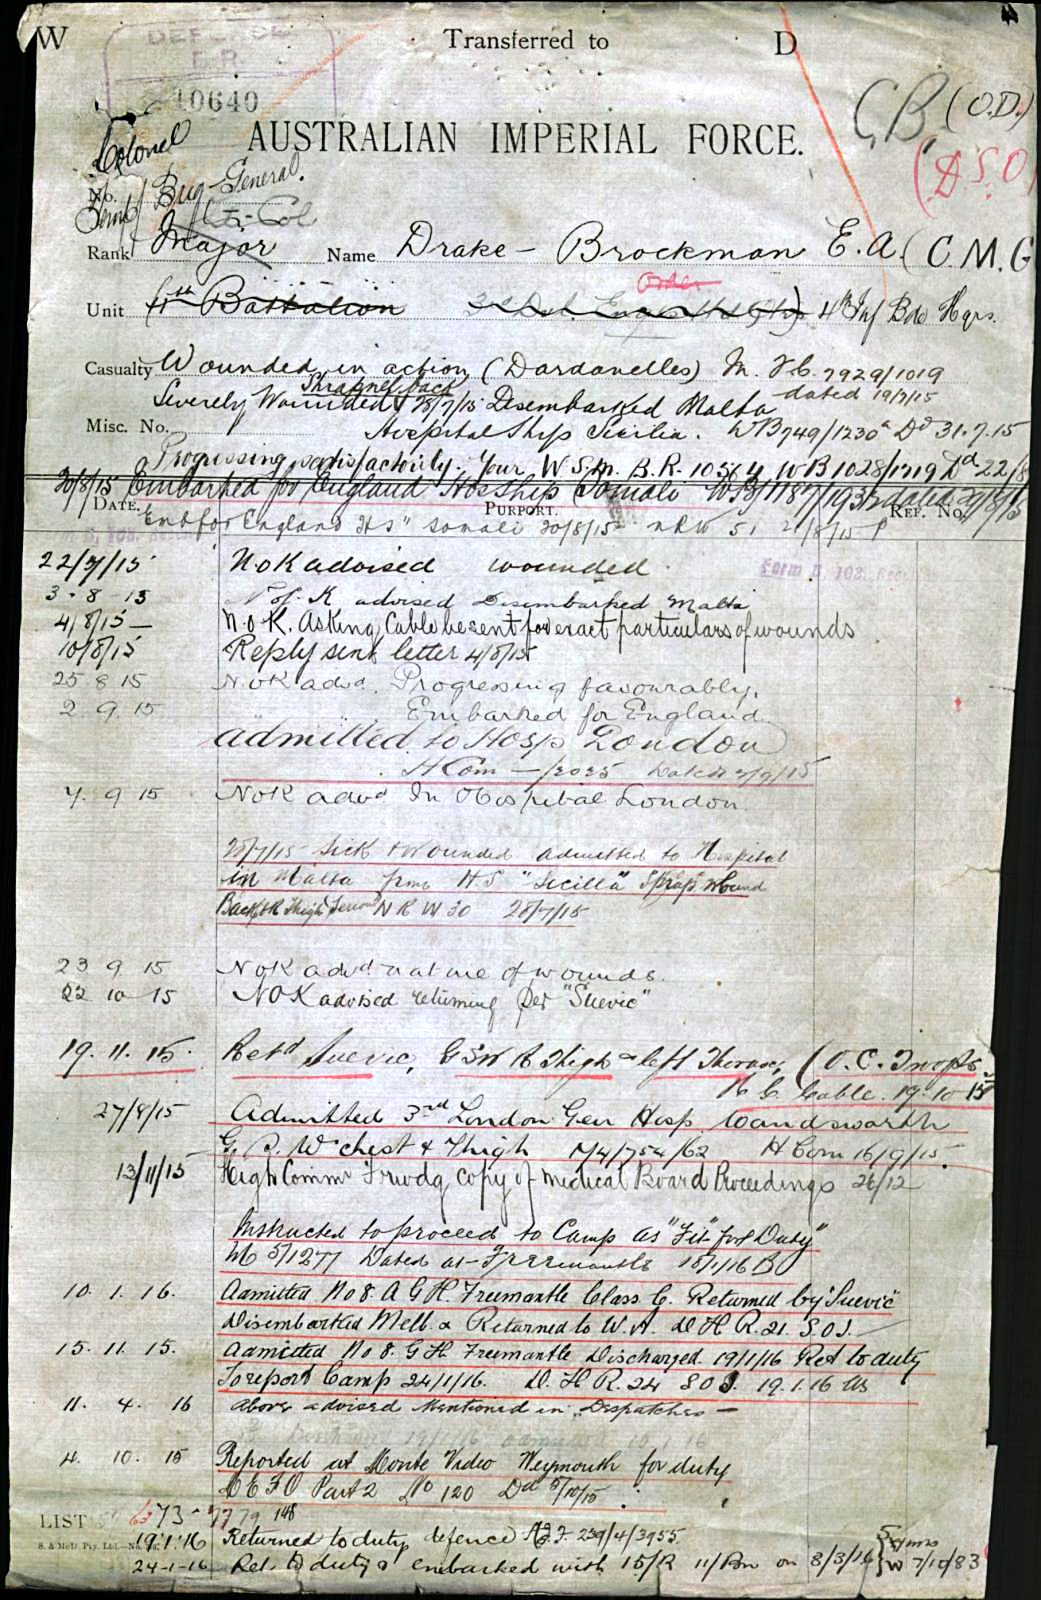 W Transferred to D
DEFENCE
10640
C.B. (O.D.)
AUSTRALIAN IMPERIAL FORCE.
(DSO
Colonel
No.
Temp Brig-General.
Lt-Col
Rank Major Name Drake-Brockman E.A. (C.M.G
Order
Unit 11th Battalion 4th Inf Bde Hqrs.
Casualty Wounded in action (Dardanelles) M. 7929/1019
dated 19/7/15
Shrapnel back
Severely Wounded 28/7/15 Disembarked Malta
Misc. No. Hospital Ship Sicilia. WB749/1230 Dd 31.7.15
Progressing satisfactorily. Your W.S.M. B.R. 10564 WB 1028/1719 Dd 22/8
30/8/15 Embarked for England Hos Ship Somali
DATE. PURPORT. REF. No.
Emb for England HS "Somali 30/8/15 NRW 51
22/7/15 NoK advised wounded.
3-8-15 N of K advised Disembarked Malta
4/8/15 N.O.K. Asking Cable be sent for exact particulars of wounds
10/8/15 Reply sent letter 4/8/15
25 8 15 N.oK advd. Progressing favourably.
2. 9. 15 Embarked for England.
admitted to Hosp London
H Com
7. 9 15 NoK advd In Hospital London.
28/7/15 Sick & Wounded admitted to Hospital
in Malta from H.S "Sicilia" Shrap wound
Back & R Thigh NRW 30 28/7/15
23 9 15 NoK advd nature of wounds.
22 10 15 NOK advised returning per "Suevic"
19. 11. 15. Retd Suevic, GSW R Thigh & left Thorax, (O.C. Troops
Cable. 19.10 15
27/8/15 Admitted 3rd London Gen Hosp Wandsworth
G.S. W chest & Thigh H Com 16/9/15.
13/11/15 High Comm Frwdg copy of Medical Board Proceedings 26/12
Instructed to proceed to Camp as "Fit for Duty"
Dated at Freemantle 18/1/16
10. 1. 16. Admitted No 8 A G H. Freemantle Class C. Returned by "Suevic"
Disembarked Melb & Returned to W.A. D H R. 21. S.O.J.
15. 11. 15. Admitted No 8. G H Freemantle Discharged 19/1/16 Ret to duty
To report Camp 24/1/16. D. H R. 24 S O J. 19.1.16
11. 4. 16 Above advised Mentioned in Despatches
4. 10. 15 Reported at Monte Video Weymouth for duty
Part 2 No 120 Dd 5/10/15
LIST 673-7779 148
19.1.16 Returned to duty defence 239/4/3955
24-1-16 Ret. to duty & embarked with 15/R 11/Bn on 8/3/16 W 7/10/83